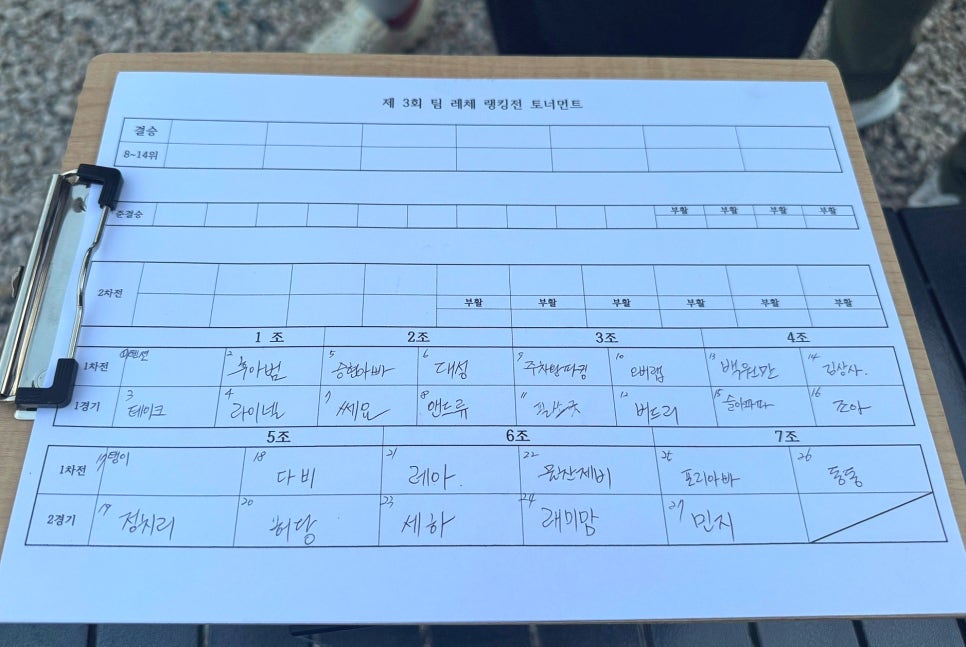 제 3회 팀 레체 랭킹전 토너먼트
결승
8~14위
준결승 부활 부활 부활 부활
2차전
부활 부활 부활 부활 부활 부활
1 조 2조 3조 4조
1차전 1 2 후아범 5 승현아빠 6 대성 9 주차탕파킹 10 오버랩 13 백원만 14 김상사.
1경기 3 테이크 4 라이넬 7 쎄요 8 앤드류 11 12 버드리 15 슬이파파 16 조아
5조 6조 7조
1차전 17 탱이 18 다비 21 레아. 22 물찬제비 25 포리아빠 26 통통
2경기 19 정치리 20 허당 23 세하 24 래미맘 27 민지